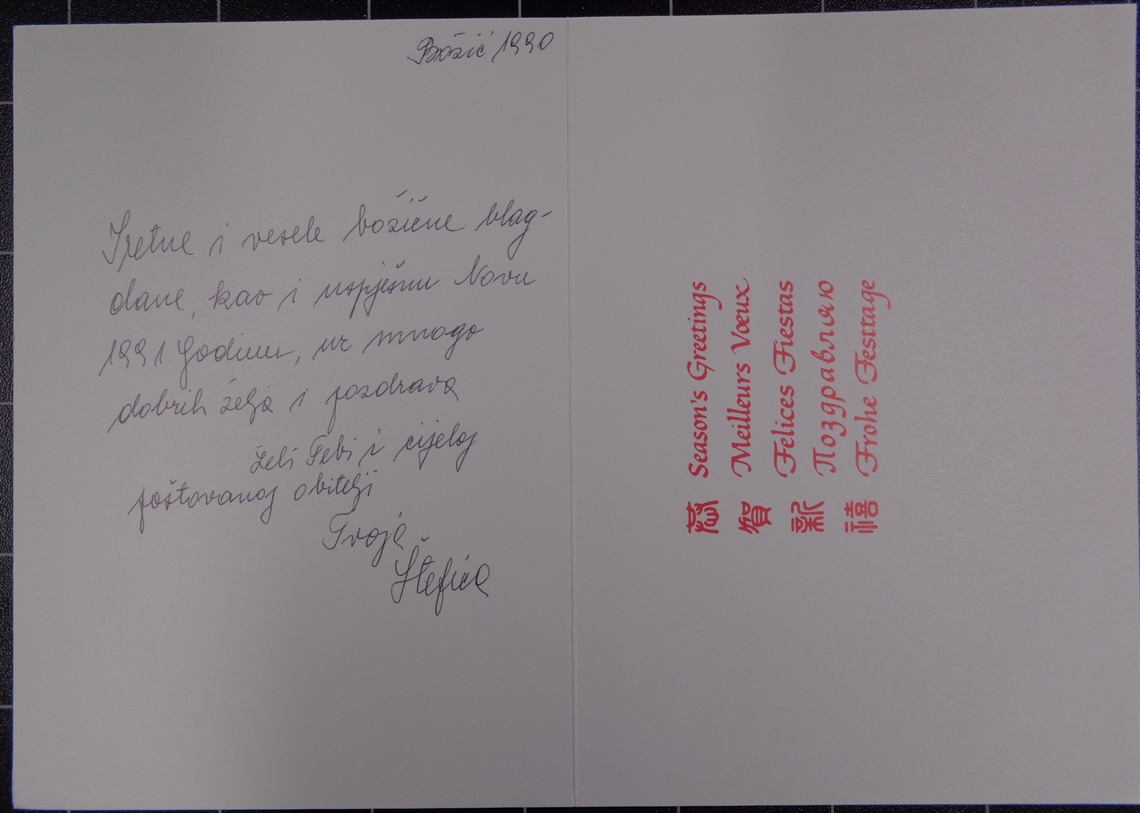 Božić 1990
Sretne i vesele božićne blag-
dane, kao i uspješnu Novu
1991 godinu, uz mnogo
dobrih želja i pozdrava
želi Tebi i cijeloj
poštovanoj obitelji
Tvoja
Štefica
Season's Greetings
Meilleurs Vœux
Felices Fiestas
Поздравляю
Frohe Festtage
恭
賀
新
禧